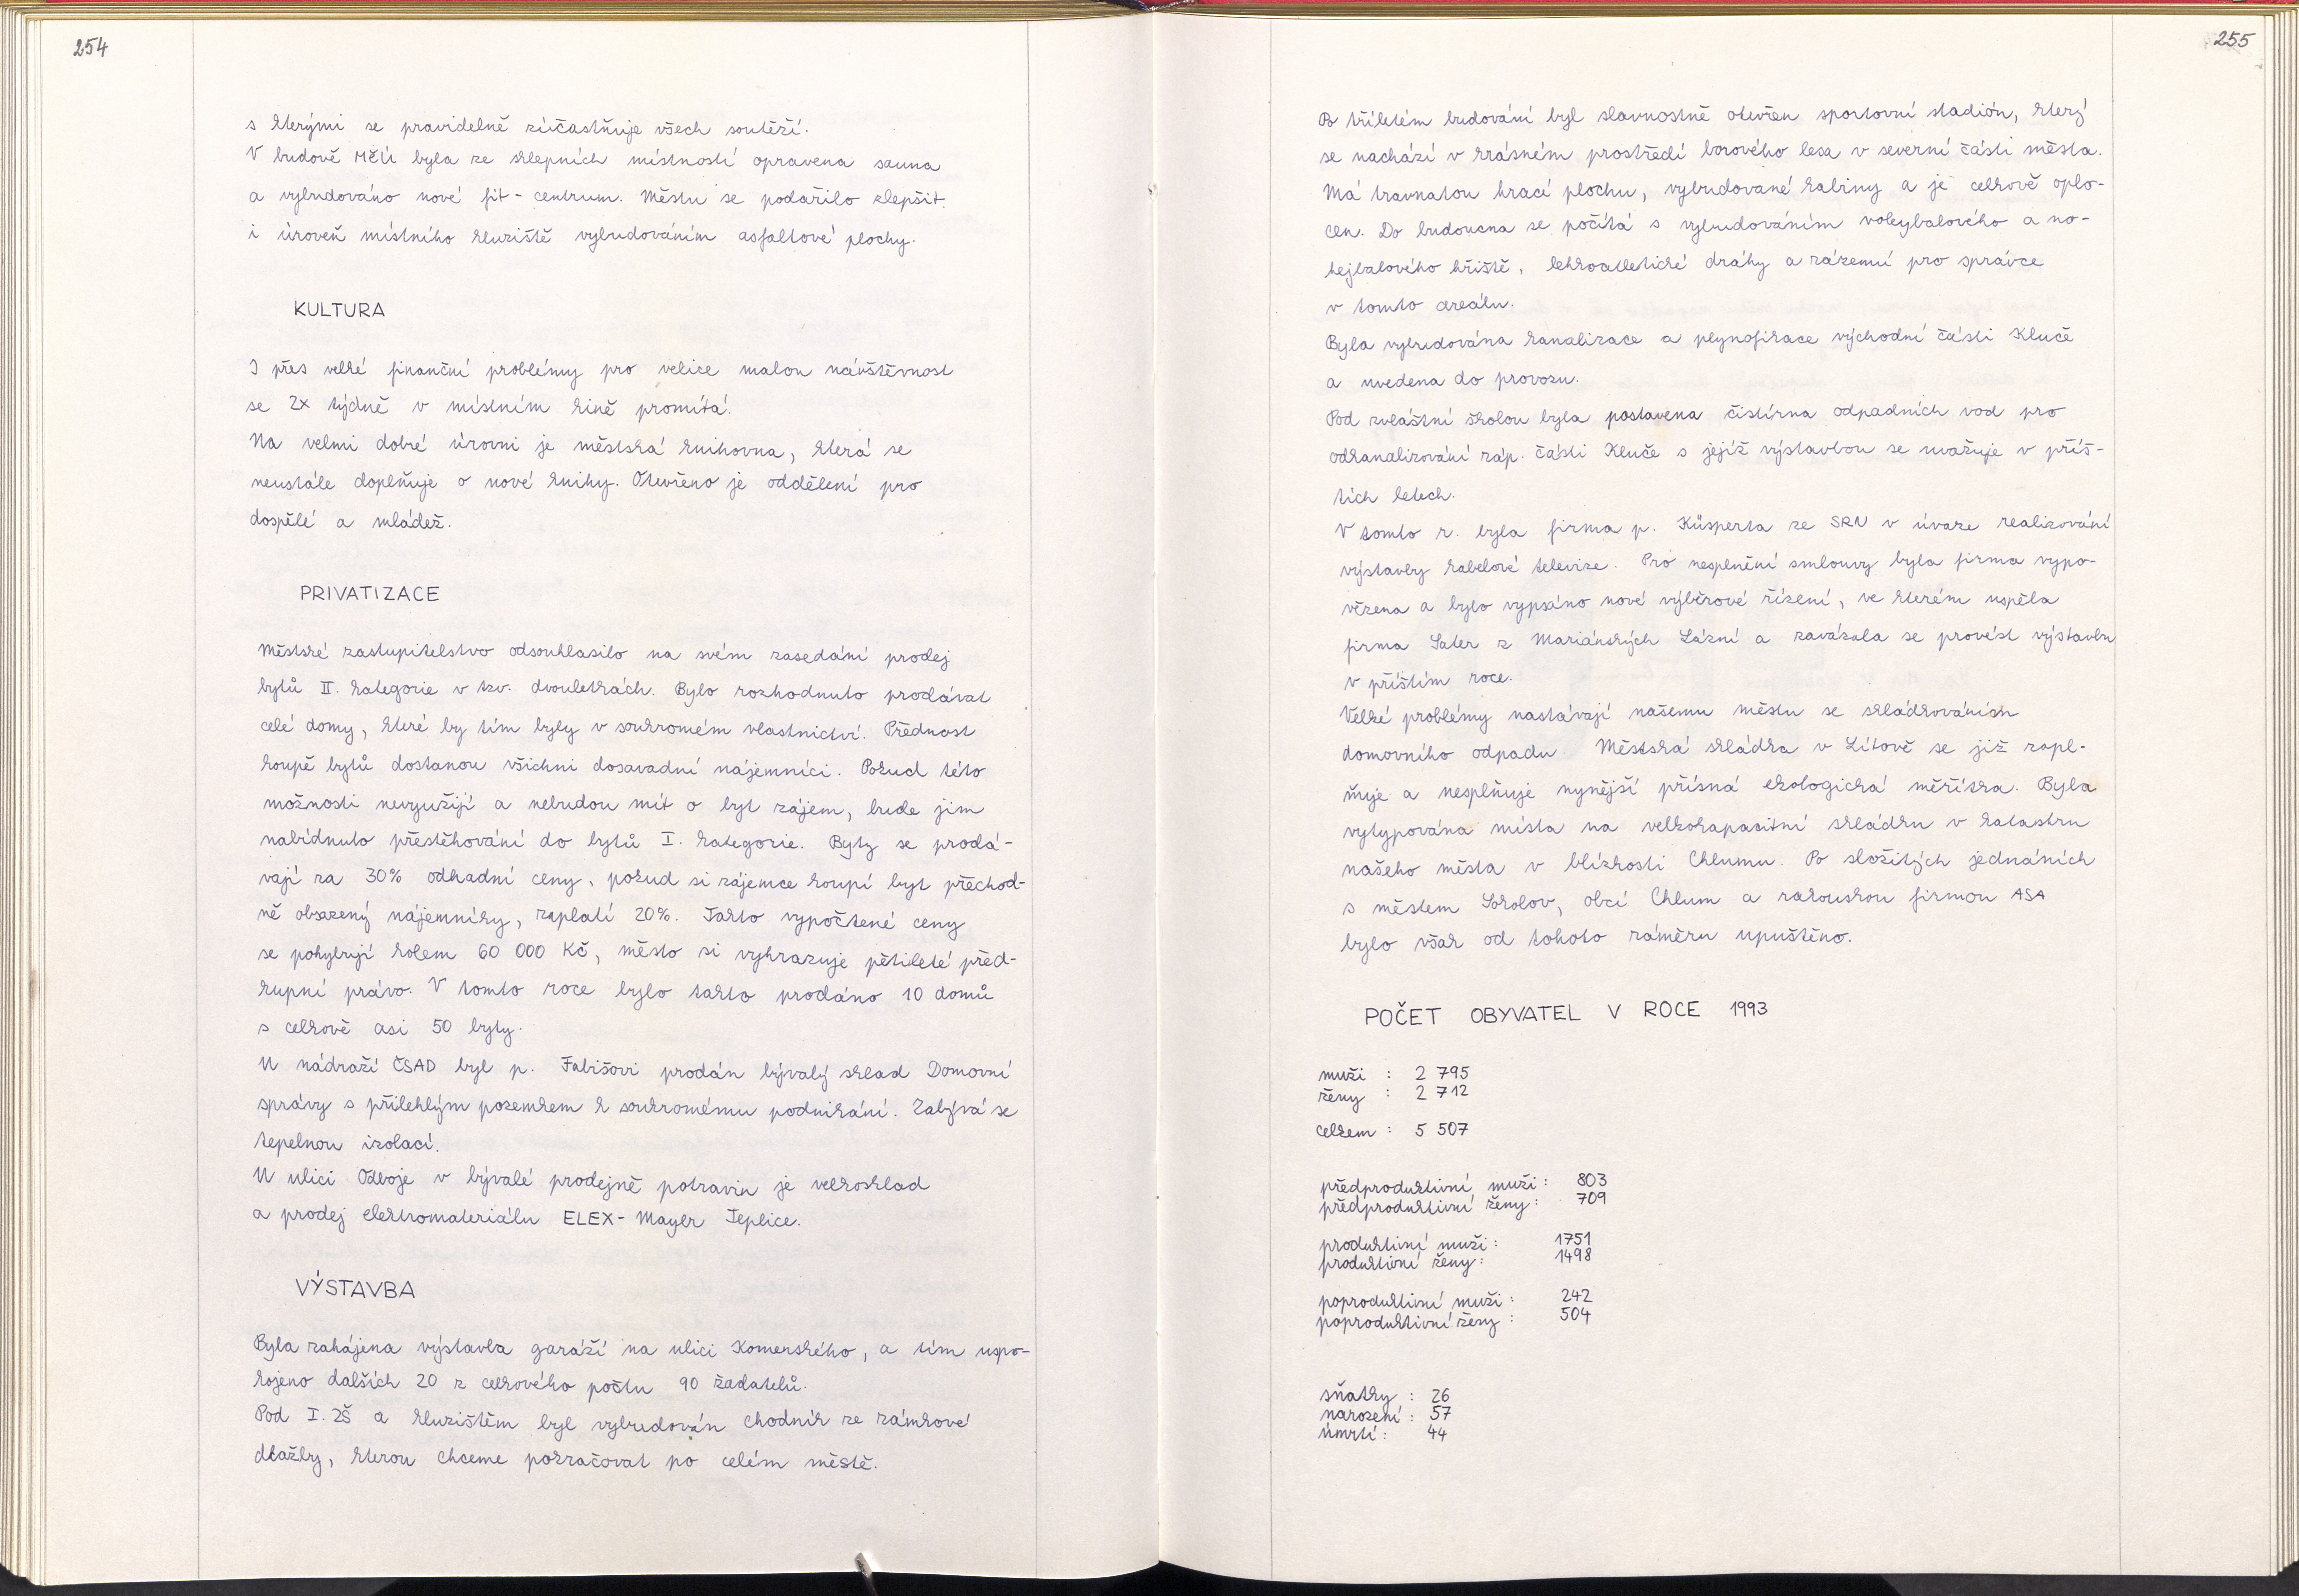 254
s kterými se pravidelně zúčastňuje všech soutěží.
V budově MŽÚ byla ze sklepních místností opravena sauna
a vybudováno nové fit - centrum. Městu se podařilo zlepšit
i úroveň místního kluziště vybudováním asfaltové plochy.
KULTURA
I přes velké finanční problémy pro velice malou návštěvnost
se 2x týdně v místním kině promítá.
Na velmi dobré úrovni je městská knihovna, která se
neustále doplňuje o nové knihy. Otevřeno je oddělení pro
dospělé a mládež.
PRIVATIZACE
Městské zastupitelstvo odsouhlasilo na svém zasedání prodej
bytů II. kategorie v tzv. dvouletkách. Bylo rozhodnuto prodávat
celé domy, které by tím byly v soukromém vlastnictví. Přednost
koupě bytů dostanou všichni dosavadní nájemníci. Pokud této
možnosti nevyužijí a nebudou mít o byt zájem, bude jim
nabídnuto přestěhování do bytů I. kategorie. Byty se prodá-
vají za 30% odhadní ceny, pokud si zájemce koupí byt přechod-
ně obsazený nájemníky, zaplatí 20%. Takto vypočtené ceny
se pohybují kolem 60 000 Kč, město si vyhrazuje pětileté před-
kupní právo. V tomto roce bylo takto prodáno 10 domů
s celkově asi 50 byty.
U nádraží ČSAD byl p. Fabišovi prodán bývalý sklad Domovní
správy s přilehlým pozemkem k soukromému podnikání. Zabývá se
tepelnou izolací.
U ulici Odboje v bývalé prodejně potravin je velkosklad
a prodej elektromateriálu ELEX - Mayer Teplice.
VÝSTAVBA
Byla zahájena výstavba garáží na ulici Komenského, a tím uspo-
kojeno dalších 20 z celkového počtu 90 žadatelů.
Pod I. ZŠ a kluzištěm byl vybudován chodník ze zámkové
dlažby, kterou chceme pokračovat po celém městě.
255
Po tříletém budování byl slavnostně otevřen sportovní stadión, který
se nachází v krásném prostředí borového lesa v severní části města.
Má travnatou hrací plochu, vybudované kabiny a je celkově oplo-
cen. Do budoucna se počítá s vybudováním volejbalového a no-
hejbalového hřiště, lehkoatletické dráhy a zázemí pro správce
v tomto areálu.
Byla vybudována kanalizace a plynofikace východní části Kluče
a uvedena do provozu.
Pod zvláštní školou byla postavena čistírna odpadních vod pro
odkanalizování záp. části Kluče s jejíž výstavbou se uvažuje v příš-
tích letech.
V tomto r. byla firma p. Küsperta ze SRN v úvaze realizování
výstavby kabelové televize. Pro nesplnění smlouvy byla firma vypo-
vězena a bylo vypsáno nové výběrové řízení, ve kterém uspěla
firma Sater z Mariánských Lázní a zavázala se provést výstavbu
v příštím roce.
Velké problémy nastávají našemu městu se skládkováním
domovního odpadu. Městská skládka v Lítově se již zapl-
ňuje a nesplňuje nynější přísná ekologická měřítka. Byla
vytypována místa na velkokapacitní skládku v katastru
našeho města v blízkosti Chlumu. Po složitých jednáních
s městem Sokolov, obcí Chlum a rakouskou firmou ASA
bylo však od tohoto záměru upuštěno.
POČET OBYVATEL V ROCE 1993
muži : 2 795
ženy : 2 712
celkem : 5 507
předproduktivní muži : 803
předproduktivní ženy : 709
produktivní muži : 1751
produktivní ženy : 1498
poproduktivní muži : 242
poproduktivní ženy : 504
sňatky : 26
narození : 57
úmrtí : 44